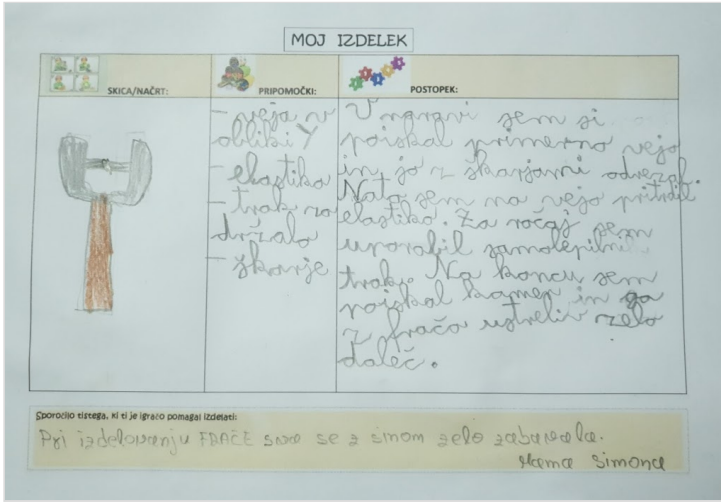 MOJ IZDELEK
SKICA/NAČRT:
PRIPOMOČKI:
POSTOPEK:
- veja v
obliki Y
- elastika
- trak za
držalo
- škarje
V naravi sem si
poiskal primerno vejo
in jo z škarjami odrezal.
Nato sem na vejo pritrdil
elastiko. Za ročaj sem
uporabil samolepilni
trak. Na koncu sem
poiskal kamen in ga
z fračo ustrelil zelo
daleč.
Sporočilo tistega, ki ti je igračo pomagal izdelati:
Pri izdelovanju FRAČE sva se z sinom zelo zabavala.
Mama Simona